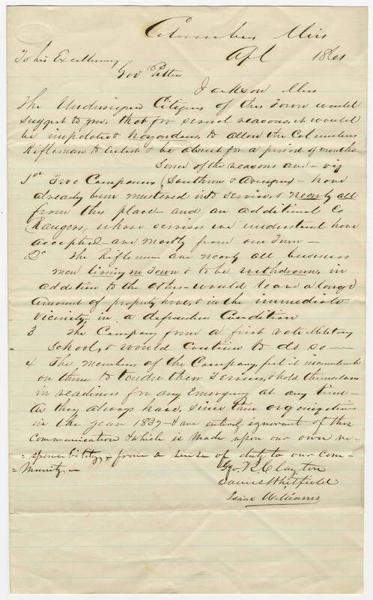 Columbus Miss
Apl 1861
To his Excellency
Gov Pettus
Jackson Miss
The Undersigned Citizens of this Town would
suggest to you, that for several reasons, it would
be impolitic & hazardous, to allow the Columbus
Riflemen to Enlist & be absent for a period of months
Some of the reasons are — viz
1st Two Companies (Southern & Avengers — have
already been mustered into service, & nearly all
from this place — and an additional Co
Rangers, whose services we understand have
accepted — are mostly from our Town —
2d The Riflemen are nearly all business
men living in Town & to be withdrawn, in
addition to the others would leave a large
amount of property here, & in the immediate
vicinity in a defenceless Condition
3 The Company form a first rate Military
School, & would Continue to do so —
4 The members of the Company feel it incumbent
on them to tender their Services, & hold themselves
in readiness for any Emergency at any time —
As they always have, since their organization
in the year 1837 — & are entirely ignorant of this
Communication which is made upon our own re-
-sponsibility, & from a sense of duty to our Com-
-munity. —
Geo. R. Clayton
James Whitfield
Isaac Williams